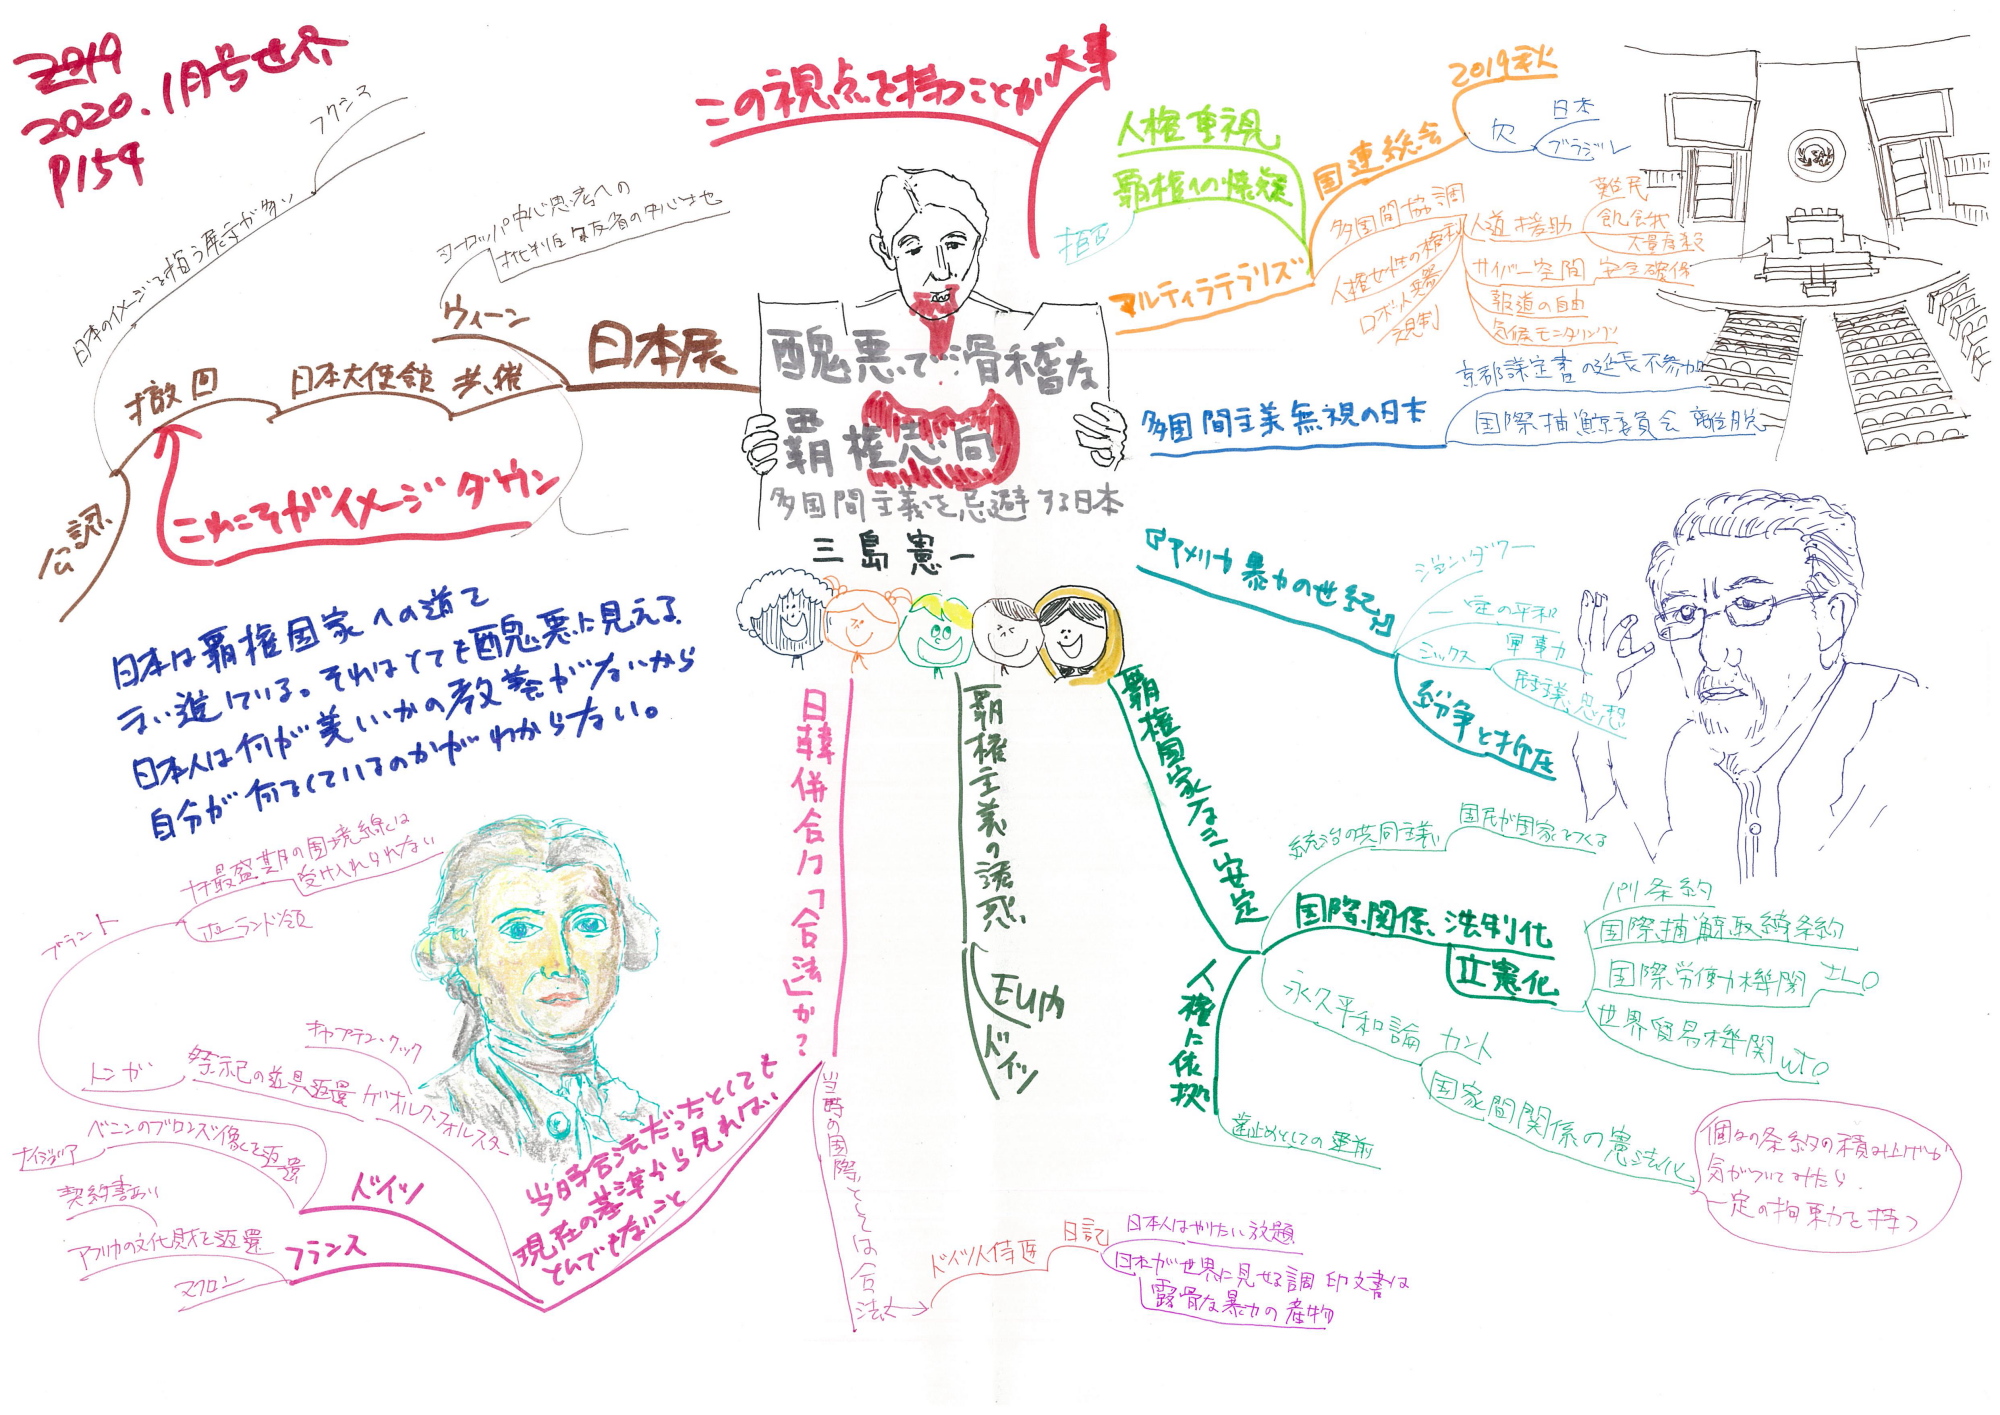 2019
2020.1月号世界
P154
この視点を持つことが大事
醜悪で滑稽な
覇権志向
多国間主義を忌避する日本
三島憲一
日本展
ウィーン
ヨーロッパ中心思考への
批判的自己反省の中心地
共催
日本大使館
撤回
公認
日本のイメージを損う展示が多い
フクシマ
これこそがイメージダウン
マルティラテラリズム
人権重視
覇権への懐疑
拒否
国連総会
2019秋
欠
日本
ブラジル
多国間協調
人道援助
難民
飢餓
大量虐殺
サイバー空間 安全確保
報道の自由
気候モニタリング
人権女性の権利
ロボット兵器
規制
多国間主義無視の日本
京都議定書の延長不参加
国際捕鯨委員会離脱
『アメリカ 暴力の世紀』
ジョン・ダワー
一定の平和
ミックス
軍事力
民主主義思想
紛争と抑圧
覇権国家なき安定
統治の共同主義
国民が国家をつくる
国際関係 法制化
立憲化
パリ条約
国際捕鯨取締条約
国際労働機関 ILO
世界貿易機関 WTO
永久平和論 カント
国家間関係の憲法化
個々の条約の積み上げが
気がついてみたら
一定の拘束力を持つ
人権に依拠
歯止めとしての
覇権主義の誘惑
EU内
ドイツ
日韓併合は「合法」か?
当時の国際法としては合法
ドイツ人侍医
日記
日本人はやりたい放題
日本が世界に見せる調印文書は
露骨な暴力の産物
当時合法だったとしても
現在の基準から見れば
とんでもないこと
ドイツ
ベニンのブロンズ像を返還
ナイジェリア
フランス
アフリカの文化財を返還
契約書あり
マクロン
ゲオルク・フォルスター
キャプテン・クック
祭祀の道具返還
トンガ
ブラント
最盛期の国境線は
受け入れられない
ポーランド領
日本は覇権国家への道を
突い進している。それはとても醜悪に見える
日本人は何が美しいかの教養がないから
自分が何をしているのかがわからない。